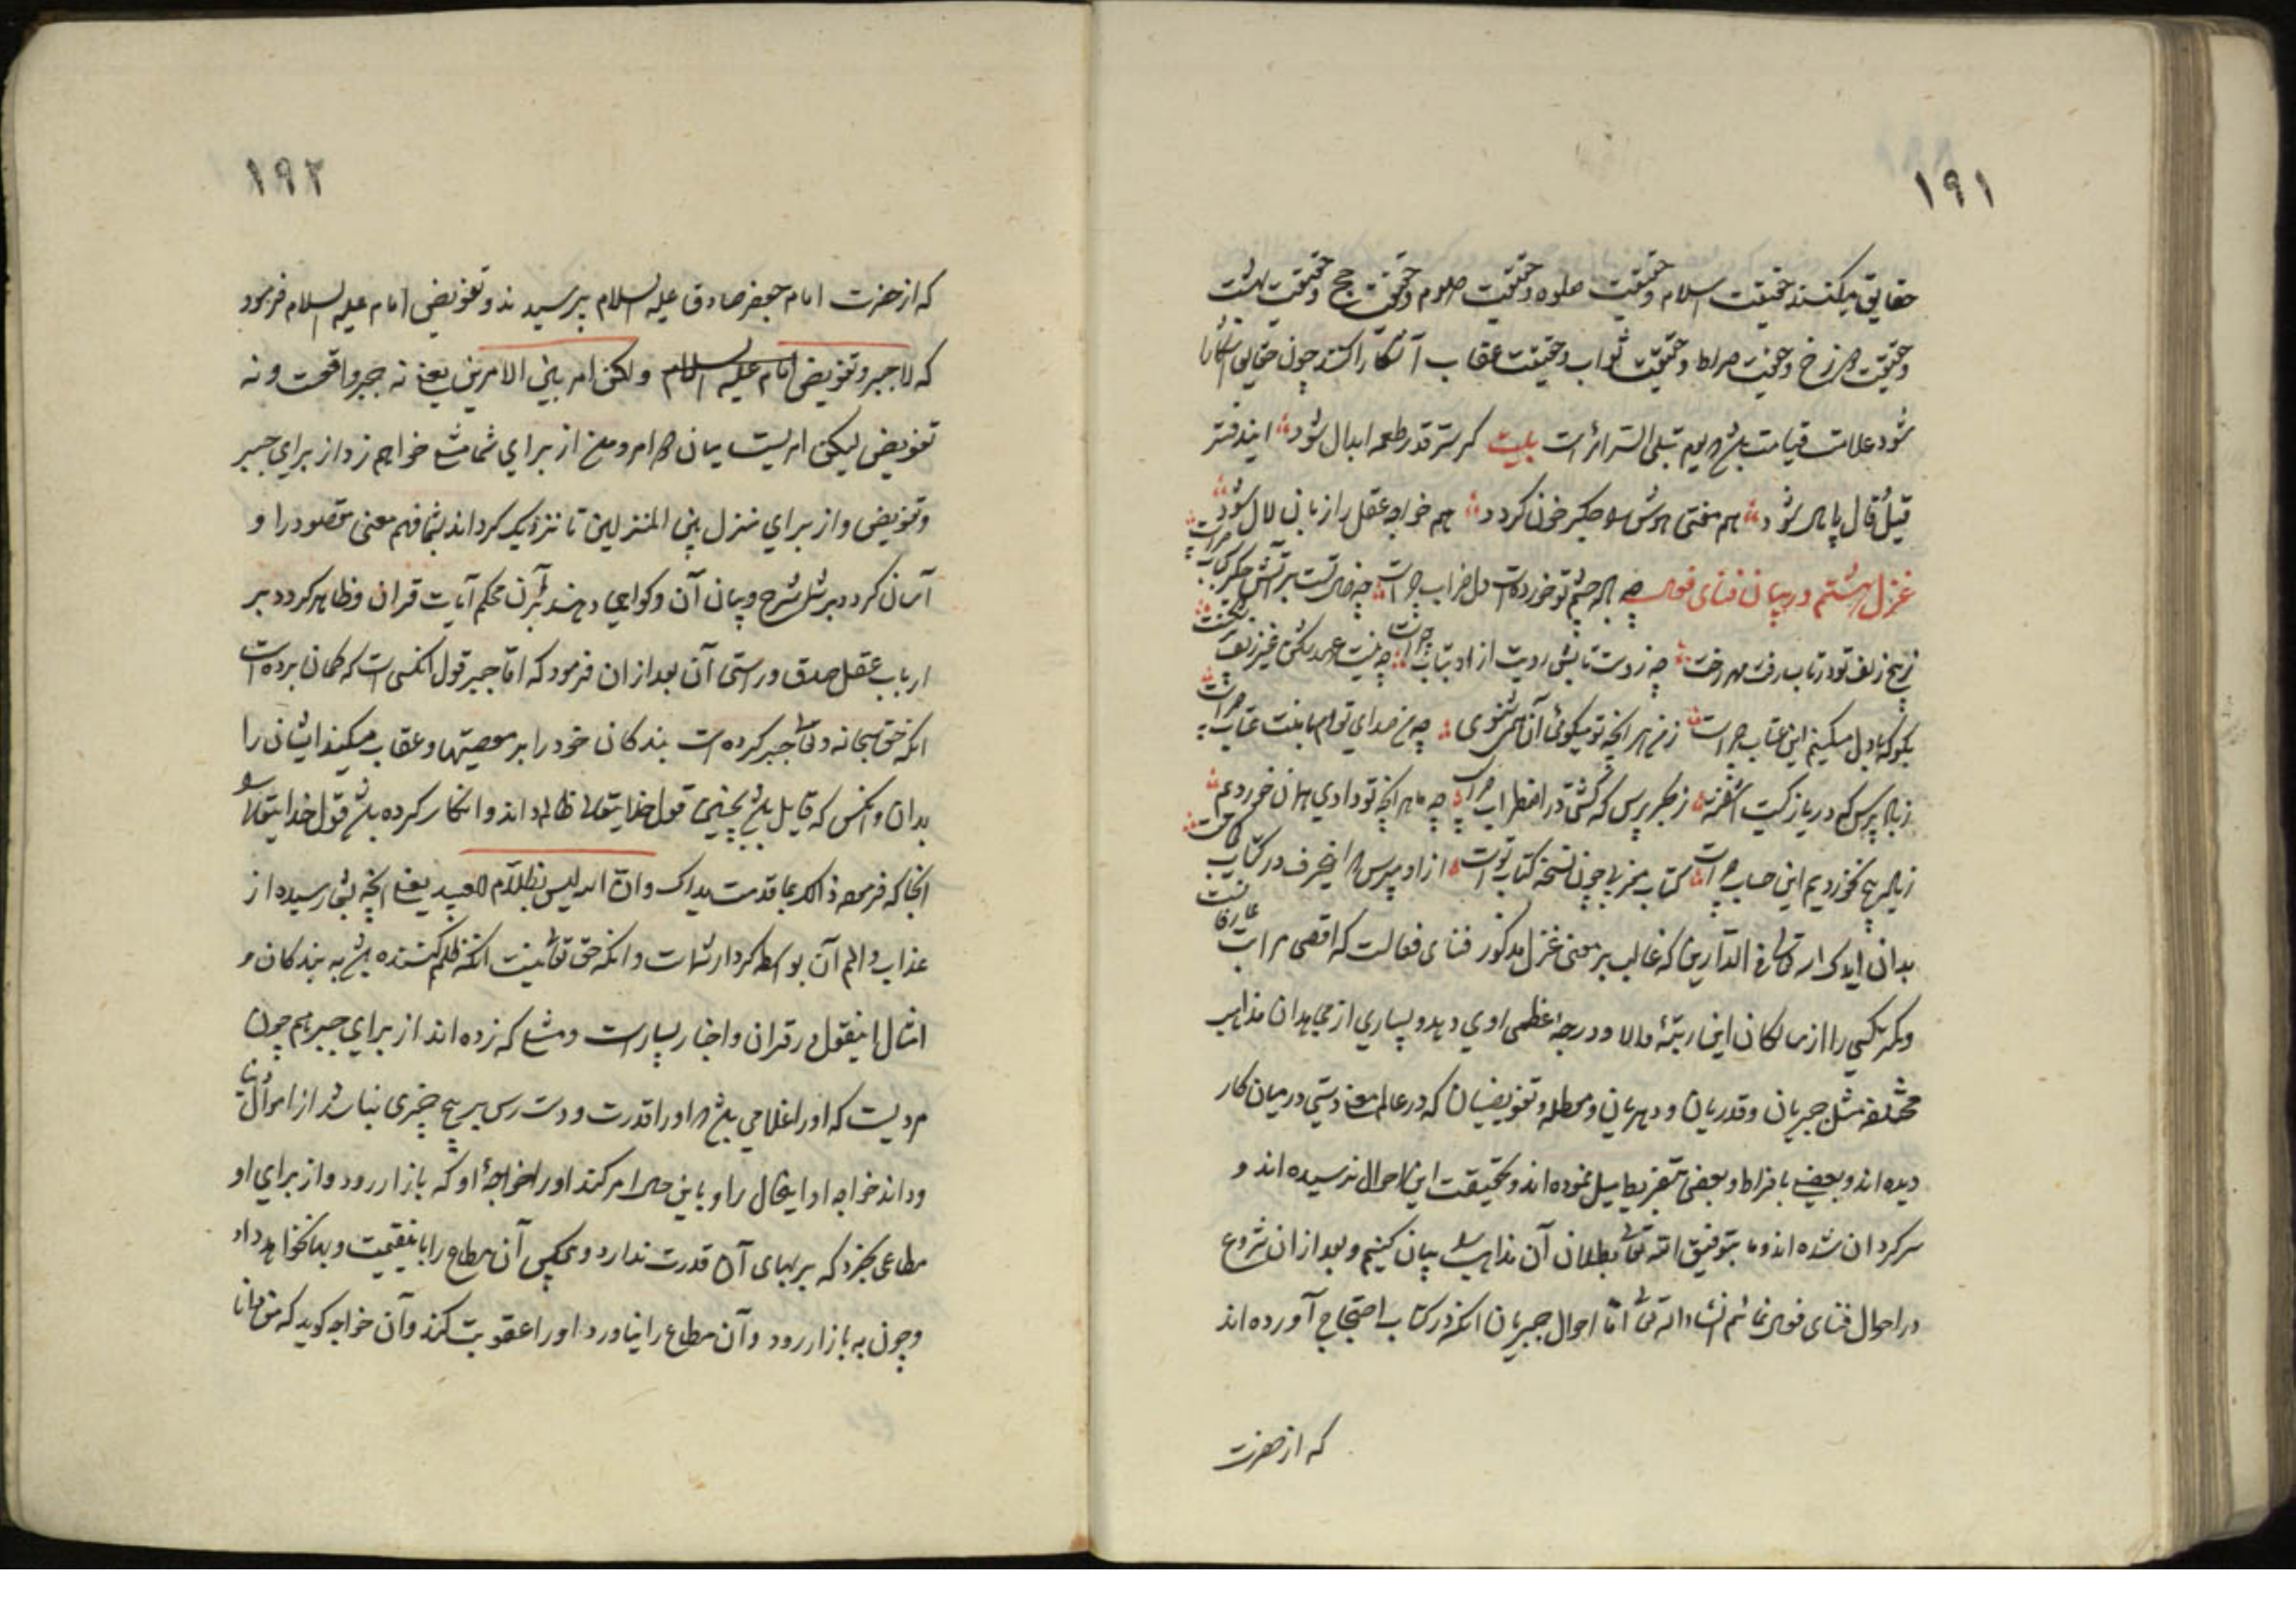 ۱۹۱
حقایق میکنند حقیقت اسلام و حقیقت صلوه و حقیقت صوم و حقیقت حج و حقیقت بهشت
و حقیقت دوزخ و حقیقت صراط و حقیقت ثواب و حقیقت عقاب آشکارا کنند چون حقایق آشکارا
شود علامت قیامت باشد یوم تبلی السرائر است بیت کر ستر قدر طعمه ابدال شود ایندفتر
قیل و قال پامال شود هم مفتی هوش را جکر خون کردد هم خواجه عقل را زبان لال شود
غزل هشتم در بیان فنای فعل چشم تو خورده است دل خراب چراست برآتش جکر کباب چراست
زهیچ زلف تو درتاب رفت تابش رویت از او بتاب چراست
بکو که با دل مسکینم این عتاب چراست ز من هر انچه تو میکوئی آن همی شنوی
ز باد پرس که دریا ز کیست آشفته ز بحر پرس که کشتی در اضطراب چراست هر انچه تو دادی همان خوردم
این حساب چراست کتاب مغربی چون نسخه کتاب تو است از او مپرس که اینحرف در کتاب چراست
بدان ایدک الله تعالی فی الدارین که غالب بر معنی غزل مذکور فنای فعالست که اقصی مراتب
را از سالکان این رتبه والا و درجه عظمی روی دهد و بسیاری از مجاهدان مذاهب
مختلفه مثل جبریان و قدریان و دهریان و معطله و تفویضیان که در عالم معنی دستی در میان کار
دیده اند و بعضی بافراط و بعضی بتفریط میل نموده اند و بحقیقت این احوال نرسیده اند و
سرکردان شده اند و ما بتوفیق الله تعالی بطلان آن مذاهب را بیان کنیم و بعد از ان شروع
در احوال فنای فعل نمائیم انشاء الله تعالی اما احوال جبریان انکه در کتاب احتجاج آورده اند
که از حضرت
۱۹۲
که از حضرت امام جعفر صادق علیه السلام پرسیدند و تفویض امام علیه السلام فرمود
که لا جبر و تفویض امام علیه السلام ولکن امر بین الامرین یعنی نه جبر واقعست و نه
تفویض لیکن امریست میان دو امر و من از برای شما مثلی خواهم زد از برای جبر
و تفویض و از برای منزل بین المنزلین تا نزدیک کرداند بشما فهم معنی مقصود را و
آسان کردد بر شرح و بیان آن و کواهی دهند برآن محکم آیات قران و ظاهر کردد بر
ارباب عقل صدق و راستی آن بعد از ان فرمود که اما جبر قول انکس است که کمان برده است
انکه حق سبحانه و تعالی جبر کرده است بندکان خود را بر معصیتها و عقاب میکند ایشان را
بدان و انکس که قایل باشد بچنین قول خدایتعالی را ظالم داند و انکار کرده باشد قول خدایتعالی را
انجا که فرموده ذالک بما قدمت یداک و ان الله لیس بظلام للعبید یعنی انچه بتو رسیده از
عذاب و الم آن بواسطه کردار تست و انکه حق تعالی نیست انکه ظلم کننده باشد به بندکان و
امثال اینقول در قران و اخبار بسیار است و مثلی که زده اند از برای جبر هم چون
مردیست که او را غلامی باشد و او را قدرت و دست رس بر هیچ چیزی نباشد از اموال دنیا
و داند خواجه او اینحال را و با این حال امر کند او را خواجه او که بازار رود و از برای او
مطاعی بخرد که بر بهای آن قدرت ندارد و هیچکس آن مطاع را بی قیمت و بها نخواهد داد
و چون به بازار رود و آن مطاع را نیاورد او را عقوبت کند و آن خواجه کوید که